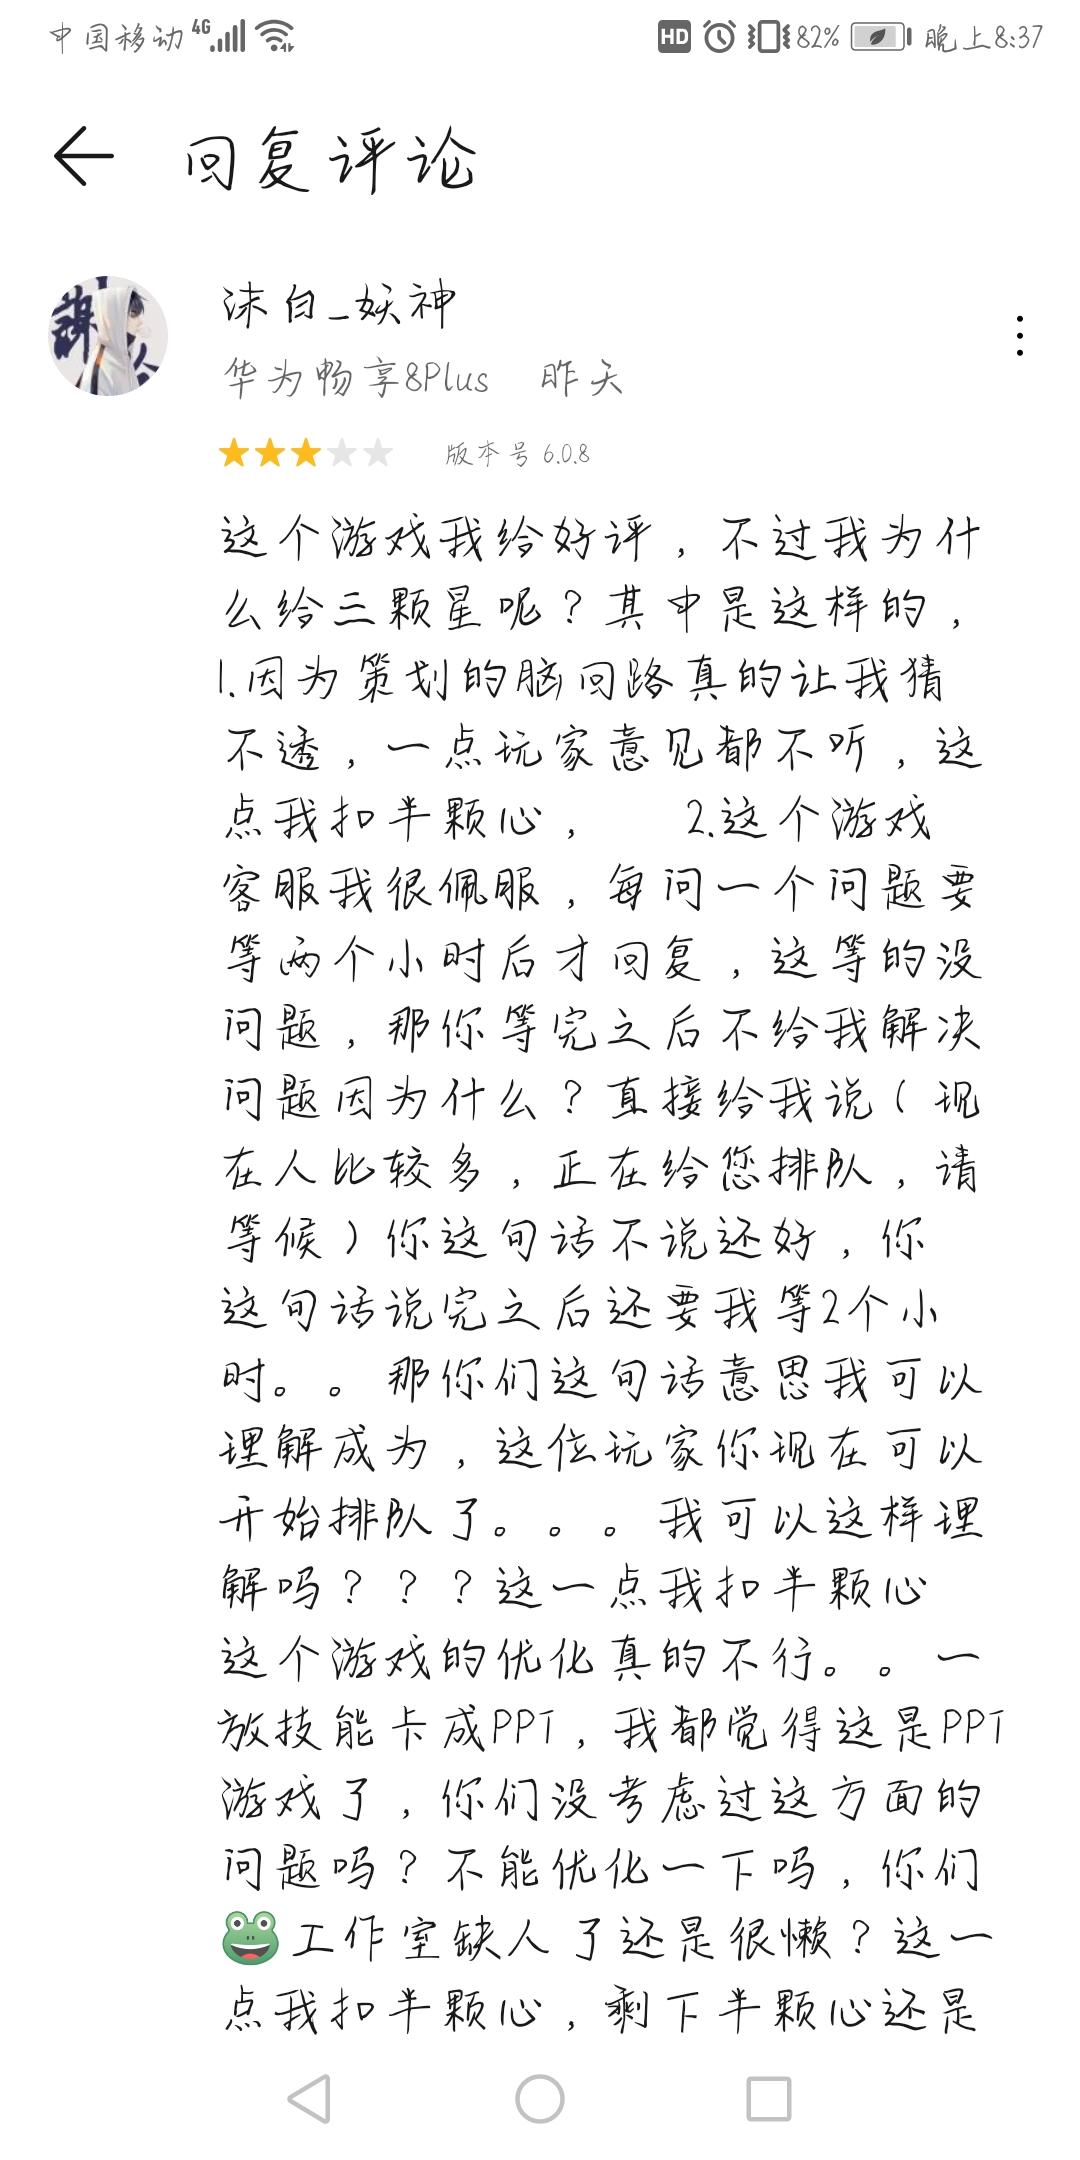 中国移动 4G HD 82% 晚上8:37
回复评论
沫白_妖神
华为畅享8Plus 昨天
版本号 6.0.8
这个游戏我给好评，不过我为什
么给三颗星呢？其中是这样的，
1.因为策划的脑回路真的让我猜
不透，一点玩家意见都不听，这
点我扣半颗心， 2.这个游戏
客服我很佩服，每问一个问题要
等两个小时后才回复，这等的没
问题，那你等完之后不给我解决
问题因为什么？直接给我说（现
在人比较多，正在给您排队，请
等候）你这句话不说还好，你
这句话说完之后还要我等2个小
时。。那你们这句话意思我可以
理解成为，这位玩家你现在可以
开始排队了。。。我可以这样理
解吗？？？这一点我扣半颗心
这个游戏的优化真的不行。。一
放技能卡成PPT，我都觉得这是PPT
游戏了，你们没考虑过这方面的
问题吗？不能优化一下吗，你们
🐸工作室缺人了还是很懒？这一
点我扣半颗心，剩下半颗心还是